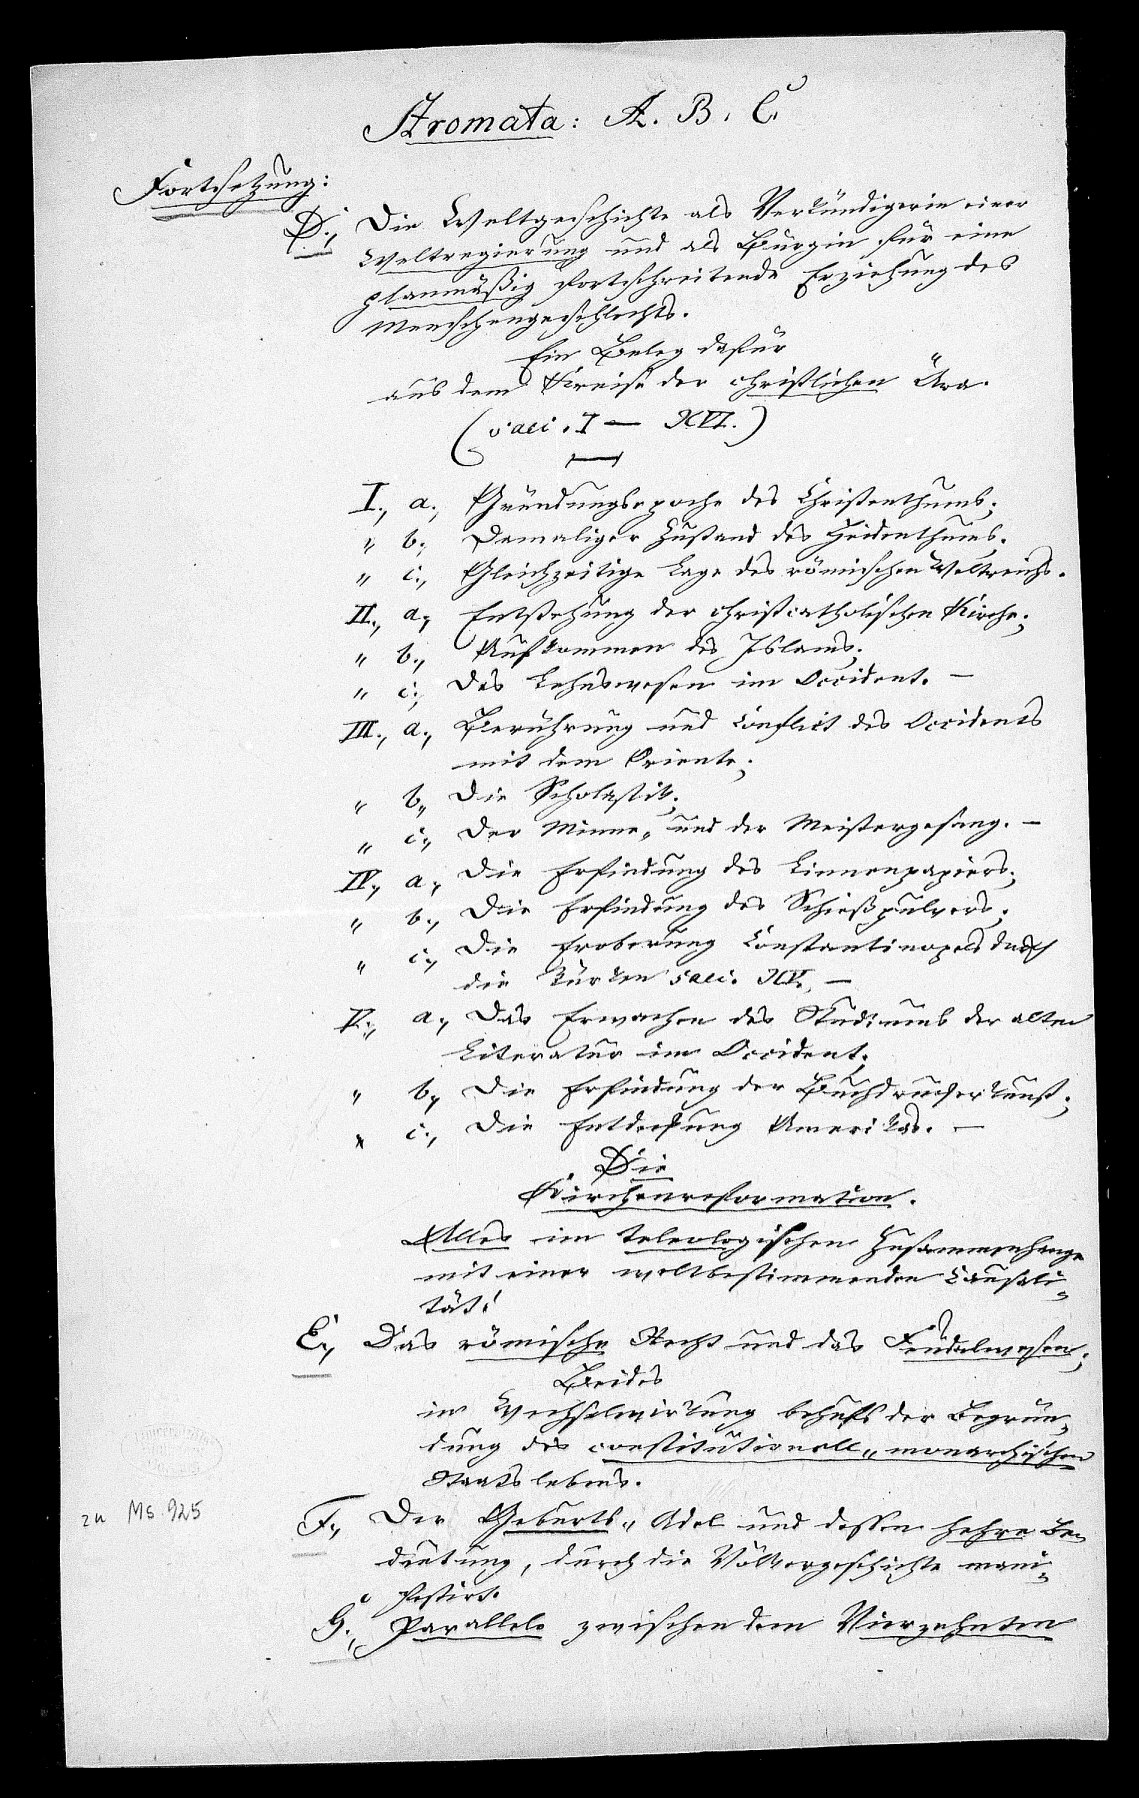 Stromata: A. B. C.
Fortsetzung:
D., Die Weltgeschichte als Verkündigerin einer
Weltregierung und als Bürgin für eine
planmäßig fortschreitende Erziehung des
Menschengeschlechts.
Ein Beleg dafür
aus dem Kreise der christlichen Ära.
(saec. I — XVI.)
I., a., Gründungsepoche des Christenthums;
" b., Damaliger Zustand des Heidenthums.
" c., Gleichzeitige Lage des römischen Weltreichs.
II., a., Entstehung der christcatholischen Kirche;
" b., Aufkommen des Islams;
" c., Das Lehnswesen im Occident. —
III., a., Berührung und Conflict des Occidents
mit dem Oriente;
" b., Die Scholastik;
" c., Der Minne- und der Meistergesang. —
IV., a., Die Erfindung des Linnenpapiers;
" b., Die Erfindung des Schießpulvers;
" c., Die Eroberung Constantinopels durch
die Türken saec. XV. —
V., a., Das Erwachen des Studiums der alten
Literatur im Occident;
" b., Die Erfindung der Buchdruckerkunst;
" c., Die Entdeckung Amerikas. —
Die
Kirchenreformation.
Alles im teleologischen Zusammenhange
mit einer weltbestimmenden Causali-
tät!
E., Das römische Recht und das Feudalwesen;
Beides
in Wechselwirkung behufs der Begrün-
dung des constitutionell-monarchischen
Staatslebens.
F., Der Geburts-Adel und dessen hehre Be-
deutung, durch die Völkergeschichte mani-
festirt.
G., Parallele zwischen dem Vierzehnten
zu Ms 925